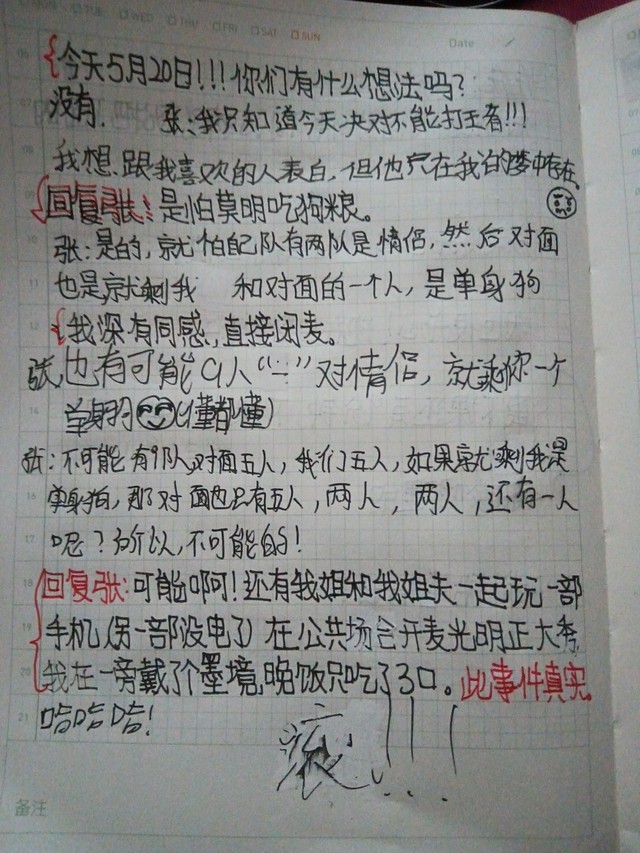 MON TUE WED THU FRI SAT SUN
Date
今天5月20日!!!你们有什么想法吗?
没有. 张:我只知道今天决对不能打王者!!!
我想跟我喜欢的人表白,但他只在我的梦中存在。
回复张:是怕莫明吃狗粮。
张:是的,就怕自己队有两队是情侣,然后对面
也是,就剩我 和对面的一个人,是单身狗
我深有同感,直接闭麦。
张,也有可能9人“一”对情侣,就剩你一个
单身狗(懂都懂)
张:不可能有9队,对面五人,我们五人,如果就剩我是
单身狗,那对面也只有五人,两人,两人,还有一人
呢?所以,不可能的!
回复张:可能啊!还有我姐和我姐夫一起玩一部
手机(另一部没电了)在公共场合开麦光明正大秀,
我在一旁戴了个墨镜,晚饭只吃了3口。此事件真实。
哈哈哈!
滚!!!
06
07
10
11
12
14
16
17
18
19
20
21
备注